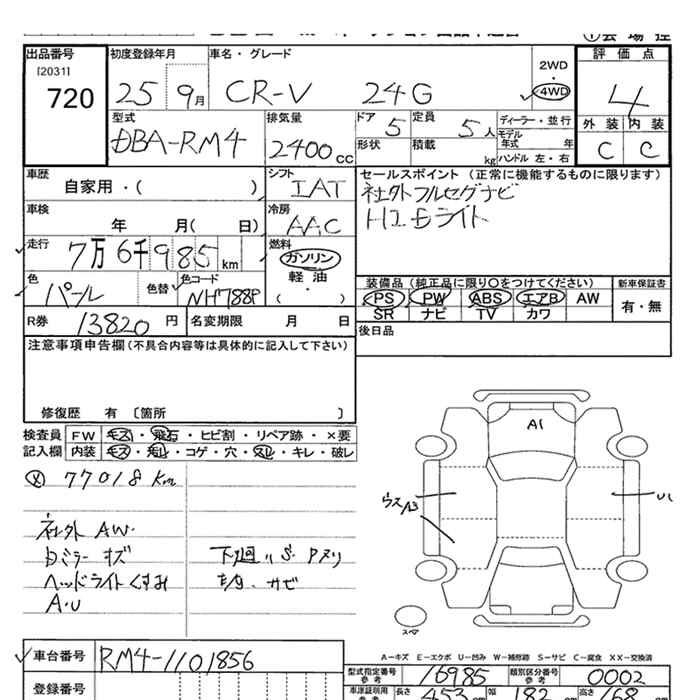 出品番号 初度登録年月 車名・グレード 2WD・4WD 評価点
[2031]
720 25 9月 CR-V 24G 4
型式 排気量 ドア 定員 ディーラー・並行 外装 内装
DBA-RM4 2400cc 5 5人 モデル年式 年 C C
形状 積載 kg ハンドル 左・右
車歴 シフト セールスポイント (正常に機能するものに限ります)
自家用・( ) IAT 社外フルセグナビ
車検 冷房 HIDライト
年 月( 日) AAC
走行 燃料
7万6千985km ガソリン
色 色替 色コード 軽油 装備品 (純正品に限り○をつけてください) 新車保証書
パール NH788P ・( ) PS PW ABS エアB AW 有・無
SR ナビ TV カワ
R券 13820円 名変期限 月 日 後日品
注意事項申告欄 (不具合内容等は具体的に記入して下さい)
修復歴 有 〔箇所 〕
検査員 FW キズ・飛石・ヒビ割・リペア跡・×要
記入欄 内装 キズ・汚レ・コゲ・穴・スレ・キレ・破レ
77018Km
社外 AW.
ミラー キズ 下廻り S.
ヘッドライトくすみ サビ
A.U
A1
ウスA3
スペア
A-キズ E-エクボ U-凹み W-補修跡 S-サビ C-腐食 XX-交換済
車台番号 RM4-1101856
型式指定番号 参考 16985 類別区分番号 参考 0002
登録番号
車庫証明用 参考 長さ 453cm 幅 182cm 高さ 168cm